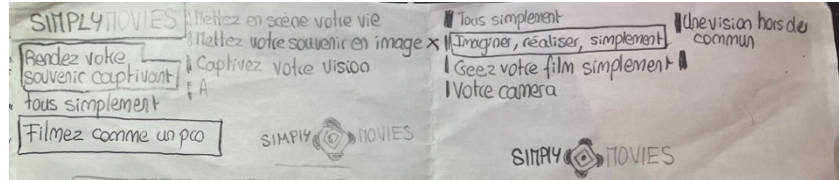 SIMPLYMOVIES
Rendez votre
souvenir captivant
tous simplement
Filmez comme un pro
Mettez en scène votre vie
Mettez votre souvenir en image x
Captivez votre vision
A
SIMPLY MOVIES
Tous simplement
Imaginer, réaliser, simplement
Creez votre film simplement
Votre camera
Une vision hors du
commun
SIMPLY MOVIES